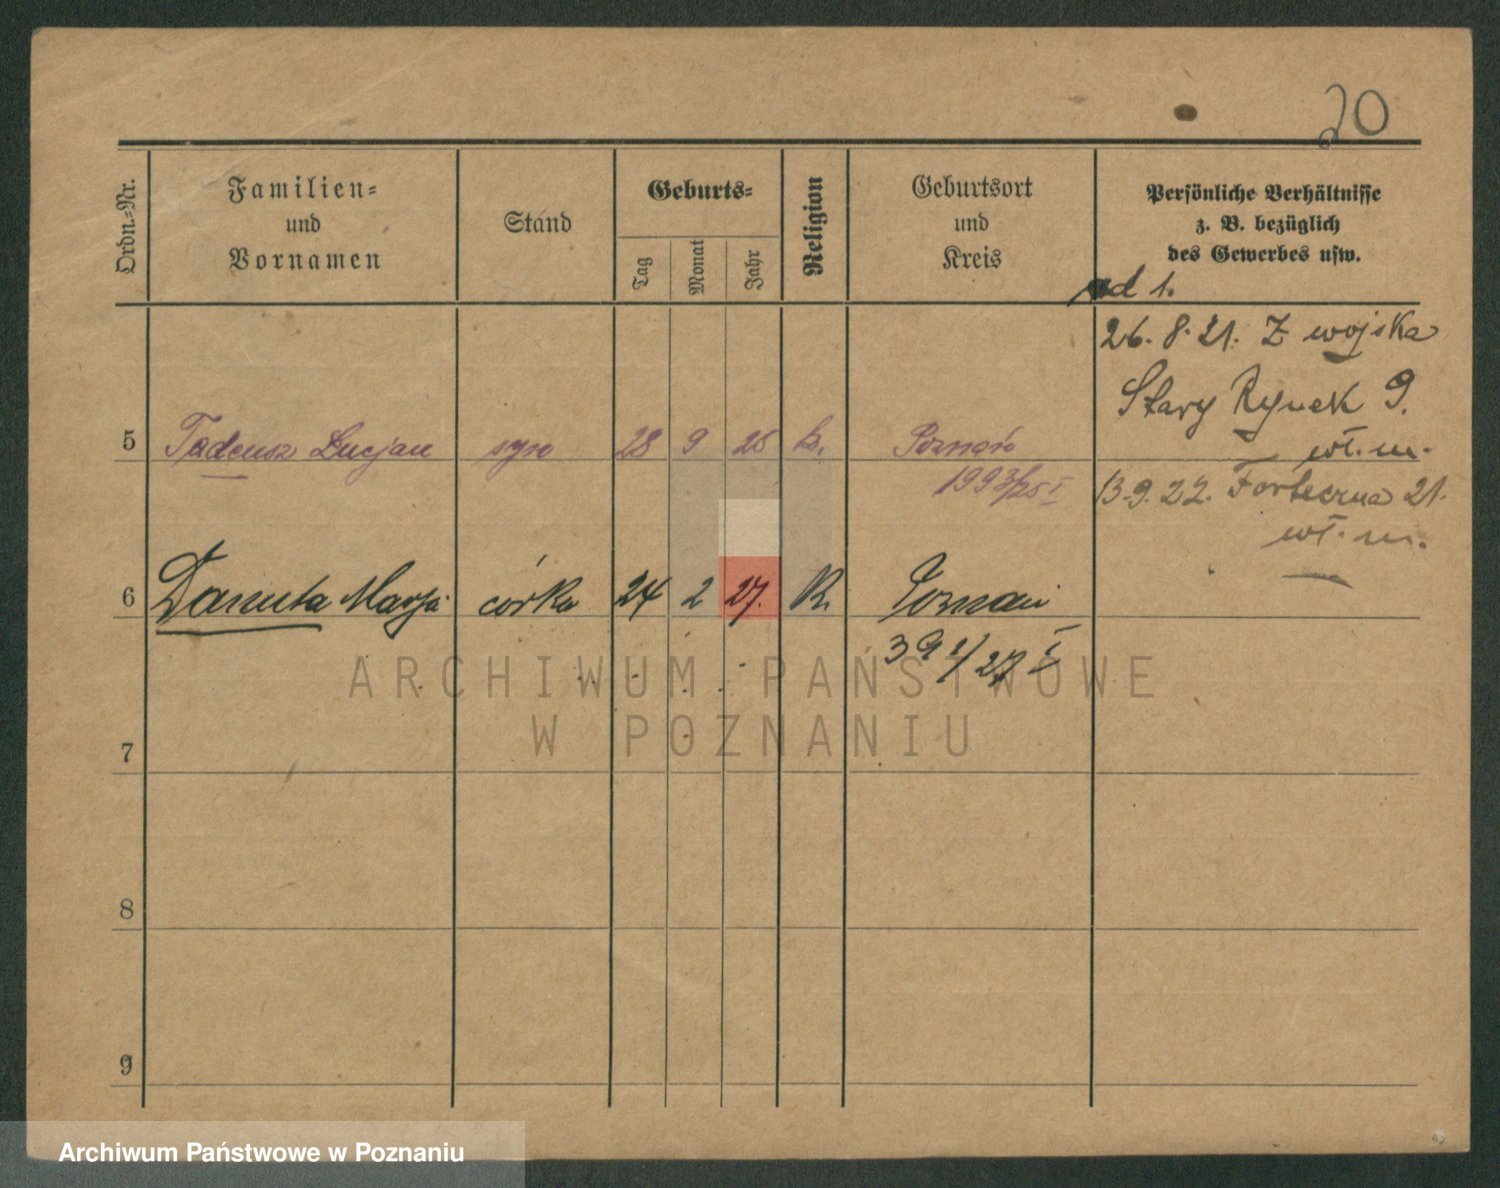 20
Ordn.-Nr.
Familien-
und
Vornamen
Stand
Geburts-
Tag
Monat
Jahr
Religion
Geburtsort
und
Kreis
Persönliche Verhältnisse
z. B. bezüglich
des Gewerbes usw.
ad 1.
26. 8. 21. Z wojska
Stary Rynek 9.
wł. m.
5 Tadeusz Lucjan syn 28 9 25 k. Poznań
1993/25 I
13. 9. 22. Forteczna 21.
wł. m.
6 Danuta Marja córka 24 2 27. R. Poznań
392/27 I
ARCHIWUM PAŃSTWOWE
W POZNANIU
7
8
9
Archiwum Państwowe w Poznaniu